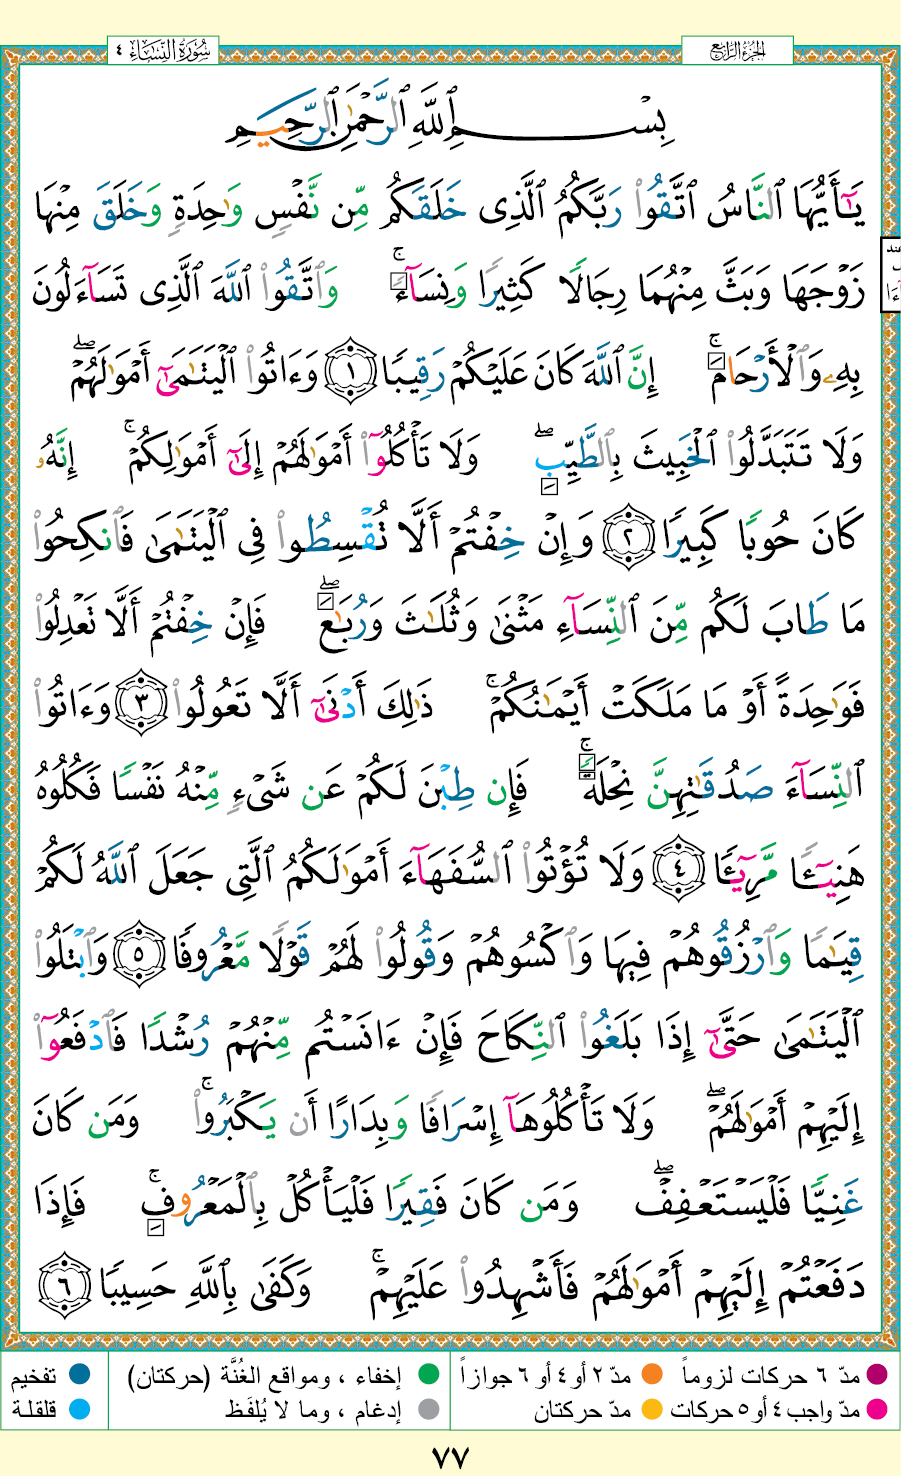 سُورَةُ النِّسَاء ٤
الجزء الرابع
بِسْمِ ٱللَّهِ ٱلرَّحْمَٰنِ ٱلرَّحِيمِ
يَـٰٓأَيُّهَا ٱلنَّاسُ ٱتَّقُوا۟ رَبَّكُمُ ٱلَّذِى خَلَقَكُم مِّن نَّفْسٍ وَٰحِدَةٍ وَخَلَقَ مِنْهَا
زَوْجَهَا وَبَثَّ مِنْهُمَا رِجَالًا كَثِيرًا وَنِسَآءً ۚ وَٱتَّقُوا۟ ٱللَّهَ ٱلَّذِى تَسَآءَلُونَ
بِهِۦ وَٱلْأَرْحَامَ ۚ إِنَّ ٱللَّهَ كَانَ عَلَيْكُمْ رَقِيبًا ١ وَءَاتُوا۟ ٱلْيَتَـٰمَىٰٓ أَمْوَٰلَهُمْ ۖ
وَلَا تَتَبَدَّلُوا۟ ٱلْخَبِيثَ بِٱلطَّيِّبِ ۖ وَلَا تَأْكُلُوٓا۟ أَمْوَٰلَهُمْ إِلَىٰٓ أَمْوَٰلِكُمْ ۚ إِنَّهُۥ
كَانَ حُوبًا كَبِيرًا ٢ وَإِنْ خِفْتُمْ أَلَّا تُقْسِطُوا۟ فِى ٱلْيَتَـٰمَىٰ فَٱنكِحُوا۟
مَا طَابَ لَكُم مِّنَ ٱلنِّسَآءِ مَثْنَىٰ وَثُلَـٰثَ وَرُبَـٰعَ ۖ فَإِنْ خِفْتُمْ أَلَّا تَعْدِلُوا۟
فَوَٰحِدَةً أَوْ مَا مَلَكَتْ أَيْمَـٰنُكُمْ ۚ ذَٰلِكَ أَدْنَىٰٓ أَلَّا تَعُولُوا۟ ٣ وَءَاتُوا۟
ٱلنِّسَآءَ صَدُقَـٰتِهِنَّ نِحْلَةً ۚ فَإِن طِبْنَ لَكُمْ عَن شَىْءٍ مِّنْهُ نَفْسًا فَكُلُوهُ
هَنِيٓـًٔا مَّرِيٓـًٔا ٤ وَلَا تُؤْتُوا۟ ٱلسُّفَهَآءَ أَمْوَٰلَكُمُ ٱلَّتِى جَعَلَ ٱللَّهُ لَكُمْ
قِيَـٰمًا وَٱرْزُقُوهُمْ فِيهَا وَٱكْسُوهُمْ وَقُولُوا۟ لَهُمْ قَوْلًا مَّعْرُوفًا ٥ وَٱبْتَلُوا۟
ٱلْيَتَـٰمَىٰ حَتَّىٰٓ إِذَا بَلَغُوا۟ ٱلنِّكَاحَ فَإِنْ ءَانَسْتُم مِّنْهُمْ رُشْدًا فَٱدْفَعُوٓا۟
إِلَيْهِمْ أَمْوَٰلَهُمْ ۖ وَلَا تَأْكُلُوهَآ إِسْرَافًا وَبِدَارًا أَن يَكْبَرُوا۟ ۚ وَمَن كَانَ
غَنِيًّا فَلْيَسْتَعْفِفْ ۖ وَمَن كَانَ فَقِيرًا فَلْيَأْكُلْ بِٱلْمَعْرُوفِ ۚ فَإِذَا
دَفَعْتُمْ إِلَيْهِمْ أَمْوَٰلَهُمْ فَأَشْهِدُوا۟ عَلَيْهِمْ ۚ وَكَفَىٰ بِٱللَّهِ حَسِيبًا ٦
مدّ ٦ حركات لزوماً مدّ ٢ أو ٤ أو ٦ جوازاً إخفاء ، ومواقع الغُنَّة (حركتان) تفخيم
مدّ واجب ٤ أو ٥ حركات مدّ حركتان إدغام ، وما لا يُلفَظ قلقلة
٧٧